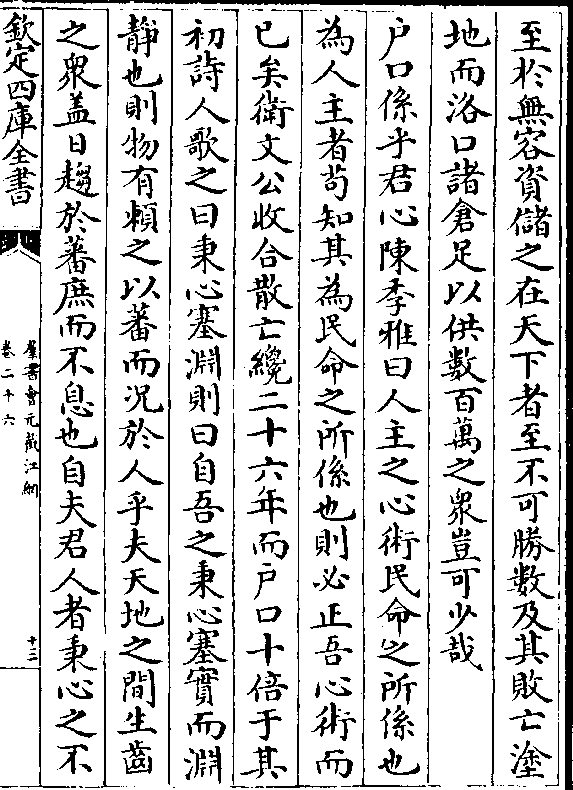 至於無容資儲之在天下者至不可勝數及其敗亡塗
地而洛口諸倉足以供數百萬之衆豈可少哉
户口係乎君心陳季雅曰人主之心術民命之所係也
為人主者茍知其為民命之所係也則必正吾心術而
已矣衛文公收合散亡纔二十六年而户口十倍于其
初詩人歌之曰秉心塞淵則曰自吾之秉心塞實而淵
靜也則物有頼之以蕃而况於人乎夫天地之間生齒
之衆盖日趨於蕃庶而不息也自夫君人者秉心之不
欽定四庫全書
羣書會元截江網
卷二十六
十二